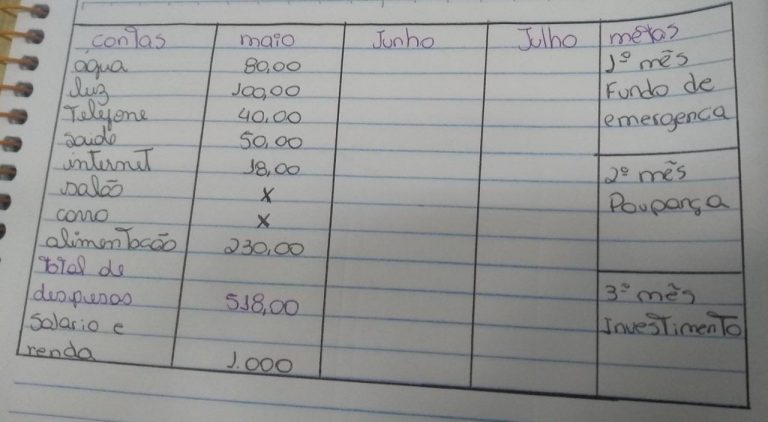 contas maio Junho Julho metas
água 80,00 1º mês
luz 100,00 Fundo de
Telefone 40,00 emergenca
saúde 50,00
internet 18,00 2º mês
salão x Poupança
carro x
alimentação 230,00
total de 3º mês
despesas 518,00 Investimento
Salario e
renda 1.000